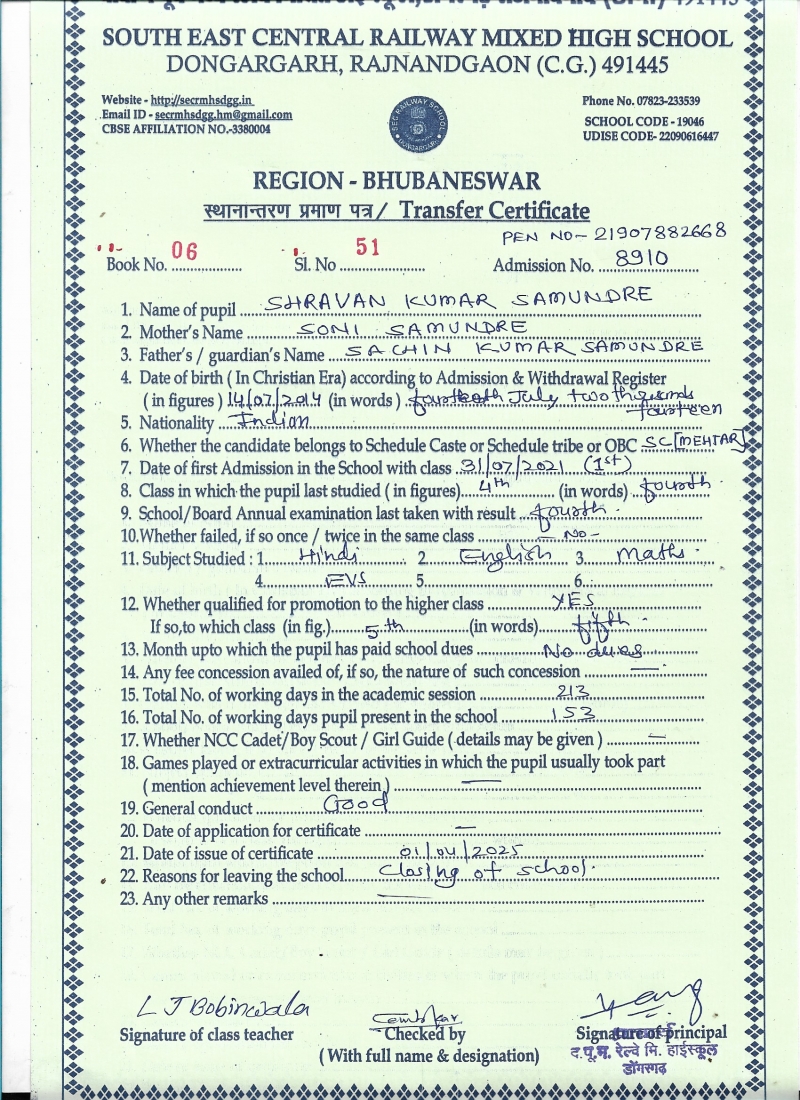 SOUTH EAST CENTRAL RAILWAY MIXED HIGH SCHOOL
DONGARGARH, RAJNANDGAON (C.G.) 491445
Website - http://secrmhsdgg.in
Email ID - secrmhsdgg.hm@gmail.com
CBSE AFFILIATION NO.-3380004
SEC RAILWAY SCHOOL
DONGARGARH
Phone No. 07823-233539
SCHOOL CODE - 19046
UDISE CODE- 22090616447
REGION - BHUBANESWAR
स्थानान्तरण प्रमाण पत्र / Transfer Certificate
PEN NO- 21907882668
Book No. 06 Sl. No 51 Admission No. 8910
1. Name of pupil SHRAVAN KUMAR SAMUNDRE
2. Mother's Name SONI SAMUNDRE
3. Father's / guardian's Name SACHIN KUMAR SAMUNDRE
4. Date of birth ( In Christian Era) according to Admission & Withdrawal Register
( in figures ) 14/07/2014 (in words ) July
fourteen
5. Nationality Indian
6. Whether the candidate belongs to Schedule Caste or Schedule tribe or OBC SC [MEHTAR]
7. Date of first Admission in the School with class 31/07/2021 (1st)
8. Class in which the pupil last studied ( in figures) 4th (in words) fourth.
9. School/Board Annual examination last taken with result fourth.
10.Whether failed, if so once / twice in the same class - No -
11. Subject Studied : 1. Hindi 2. English 3. Maths.
4. EVS 5. 6.
12. Whether qualified for promotion to the higher class YES
If so,to which class (in fig.) 5th (in words) fifth.
13. Month upto which the pupil has paid school dues No dues
14. Any fee concession availed of, if so, the nature of such concession —
15. Total No. of working days in the academic session 213
16. Total No. of working days pupil present in the school 153
17. Whether NCC Cadet/Boy Scout / Girl Guide ( details may be given ) —
18. Games played or extracurricular activities in which the pupil usually took part
( mention achievement level therein ) —
19. General conduct Good
20. Date of application for certificate —
21. Date of issue of certificate 01/04/2025
22. Reasons for leaving the school Closing of school.
23. Any other remarks —
L J Bobinwala
Signature of class teacher Checked by Signature of principal
( With full name & designation)
द.पू.म. रेल्वे मि. हाईस्कूल
डोंगरगढ़